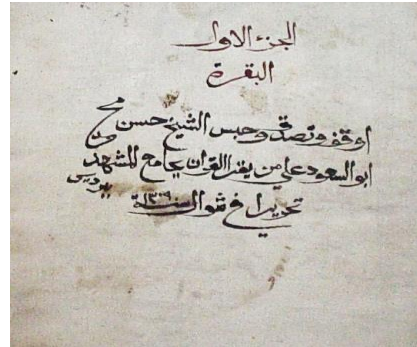 الجزء الاول
البقرة
اوقف وتصدق وحبس الشيخ حسن
ابو السعود علي من يقرا القران بجامع المشهد
تحريرا في شوال سنة